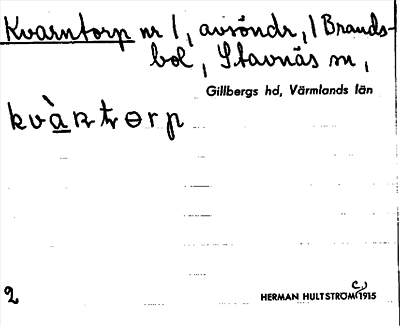 Kvarntorp nr 1, avsöndr, / Brands-
bol, Stavnäs sn,
Gillbergs hd, Värmlands län
2
HERMAN HULTSTRÖM 1915